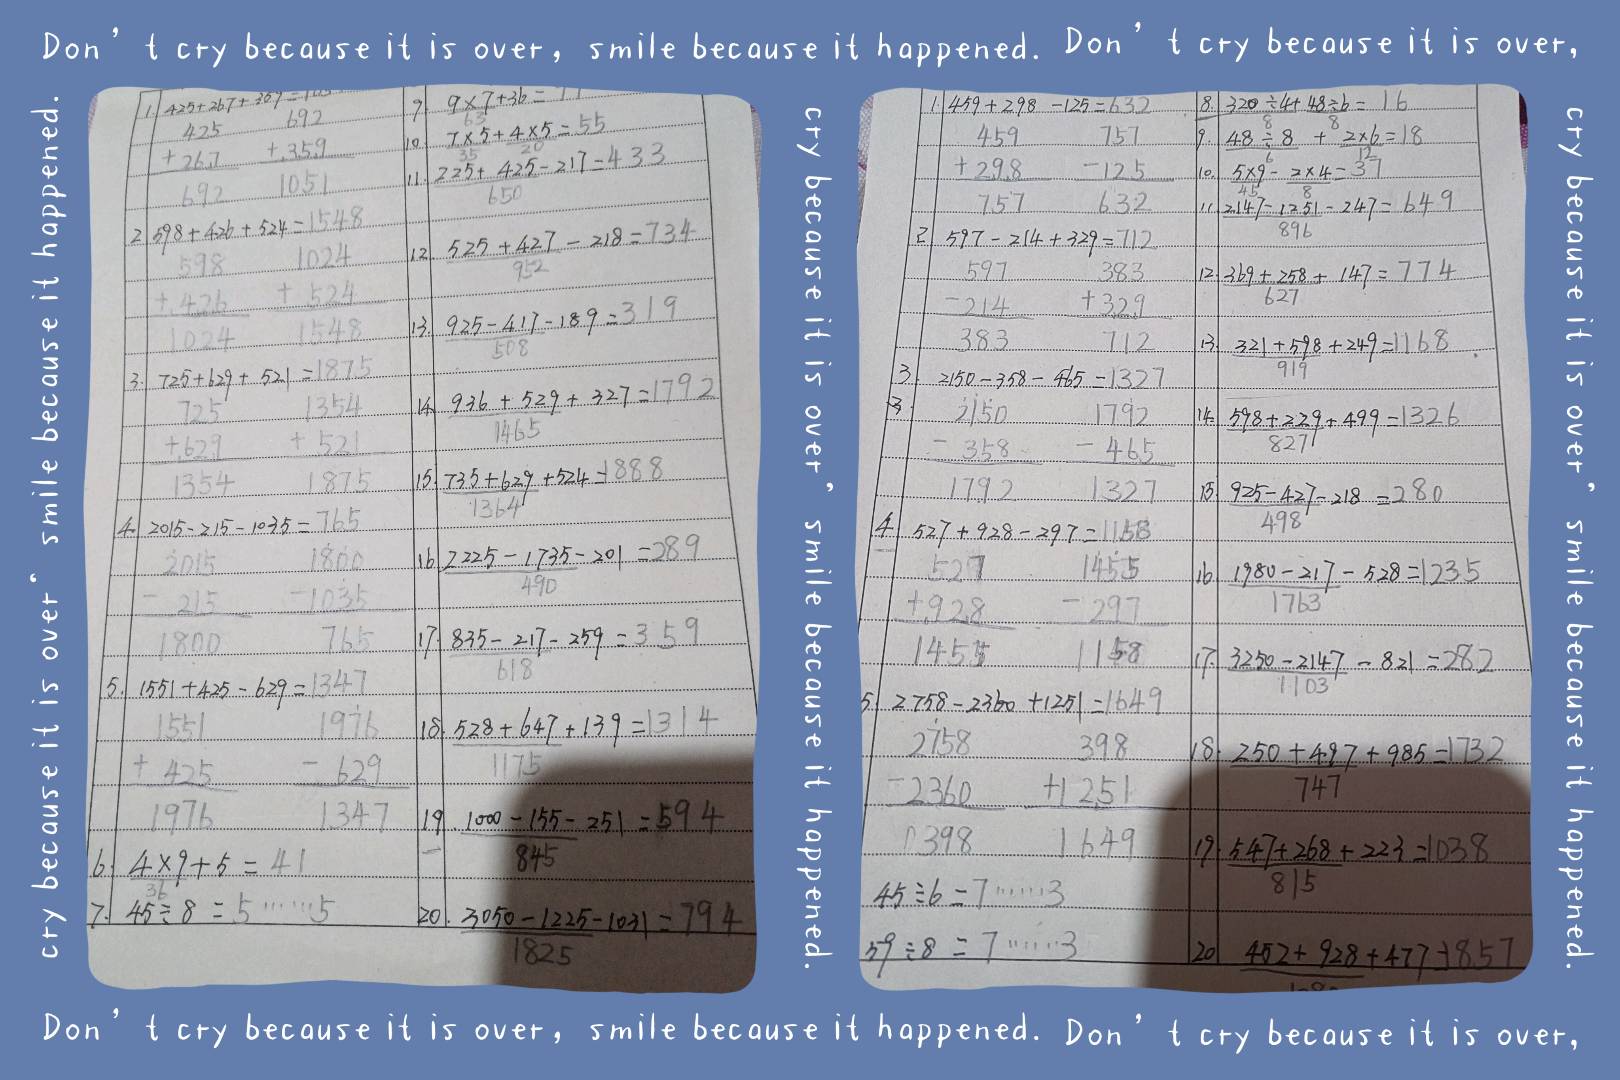 Don't cry because it is over, smile because it happened. Don't cry because it is over,
cry because it is over" smile because it happened.
1. 425+267+359=
425 692
+267 +359
692 1051
2 598+426+524=1548
598 1024
+426 +524
1024 1548
3. 725+629+521=1875
725 1354
+629 +521
1354 1875
4. 2015-215-1035=765
2015 1800
-215 -1035
1800 765
5. 1551+425-629=1347
1551 1976
+425 -629
1976 1347
6. 4×9+5=41
36
7. 45÷8=5……5
9. 9×7+36=
63
10. 7×5+4×5=55
35 20
11. 225+425-217=433
650
12. 525+427-218=734
952
13. 925-417-189=319
508
14. 936+529+327=1792
1465
15. 735+629+524=1888
1364
16. 2225-1735-201=289
490
17. 835-217-259=359
618
18. 528+647+139=1314
1175
19. 1000-155-251=594
845
20. 3050-1225-1031=794
1825
cry because it is over" smile because it happened.
1. 459+298-125=632
459 757
+298 -125
757 632
2. 597-214+329=712
597 383
-214 +329
383 712
3. 2150-358-465=1327
3. 2150 1792
-358 -465
1792 1327
4. 527+928-297=1158
527 1455
+928 -297
1455 1158
5. 2758-2360+1251=1649
2758 398
-2360 +1251
0398 1649
45÷6=7……3
59÷8=7……3
8. 320÷4+48÷6=16
8 8
9. 48÷8+2×6=18
6 12
10. 5×9-2×4=37
45 8
11. 2147-1251-247=649
896
12. 369+258+147=774
627
13. 321+598+249=1168
919
14. 598+229+499=1326
827
15. 925-427-218=280
498
16. 1980-217-528=1235
1763
17. 3250-2147-821=282
1103
18. 250+497+985=1732
747
19. 547+268+223=1038
815
20 452+928+477=1857
cry because it is over" smile because it happened.
Don't cry because it is over, smile because it happened. Don't cry because it is over,